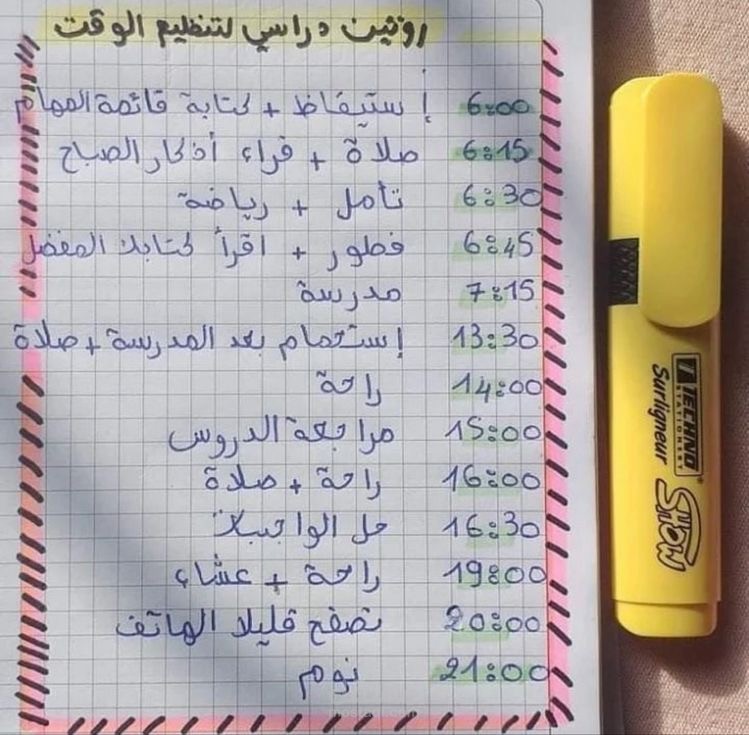 روتين دراسي لتنظيم الوقت
6:00 إستيقاظ + كتابة قائمة المهام
6:15 صلاة + قراء أذكار الصباح
6:30 تأمل + رياضة
6:45 فطور + اقرأ كتابك المفضل
7:15 مدرسة
13:30 إستحمام بعد المدرسة + صلاة
14:00 راحة
15:00 مراجعة الدروس
16:00 راحة + صلاة
16:30 حل الواجبات
19:00 راحة + عشاء
20:00 تصفح قليلا الهاتف
21:00 نوم
TECHNO
STATIONERY
Surligneur
SHOW